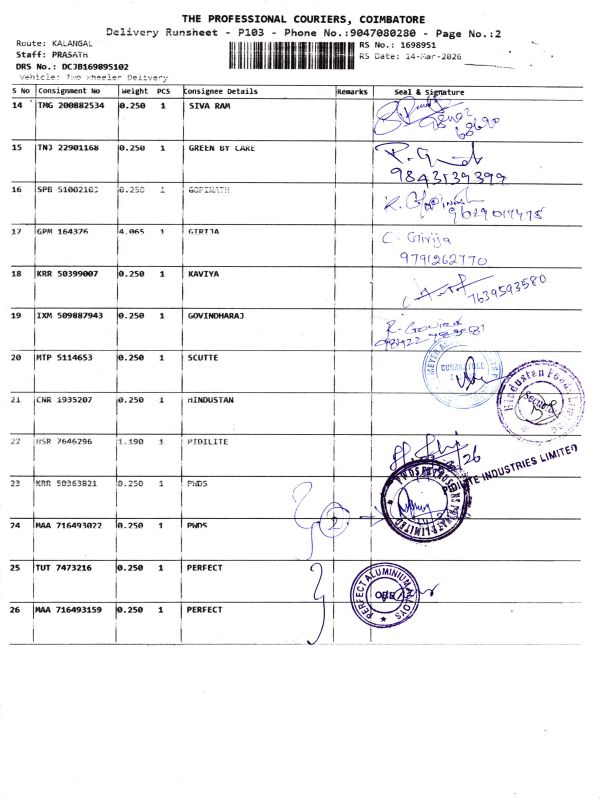 THE PROFESSIONAL COURIERS, COIMBATORE
Delivery Runsheet - P103 - Phone No.:9047080280 - Page No.:2
Route: KALANGAL
Staff: PRASATH
DRS No.: DCJB169895102
Vehicle: Two Wheeler Delivery
RS No.: 1698951
RS Date: 14-Mar-2026
S No Consignment No Weight PCS Consignee Details Remarks Seal & Signature
14 TMG 200882534 0.250 1 SIVA RAM
98402
68690
15 TNJ 22901168 0.250 1 GREEN BY CARE
9843139399
16 SPB 51002103 0.250 1 GOPINATH
K. Gopinath
9629017475
17 GPM 164376 4.065 1 GIRIJA
C. Girija
9791262770
18 KRR 50399007 0.250 1 KAVIYA
7639593580
19 IXM 509887943 0.250 1 GOVINDHARAJ
20 MTP 5114653 0.250 1 SCUTTE
21 CNR 1935207 0.250 1 HINDUSTAN
Hindustan
22 HSR 7646296 1.190 1 PIDILITE
INDUSTRIES LIMITED
23 KRR 50363821 0.250 1 PWDS
24 MAA 716493022 0.250 1 PWDS
2
25 TUT 7473216 0.250 1 PERFECT
PERFECT ALUMINIUM ALLOYS
26 MAA 716493159 0.250 1 PERFECT